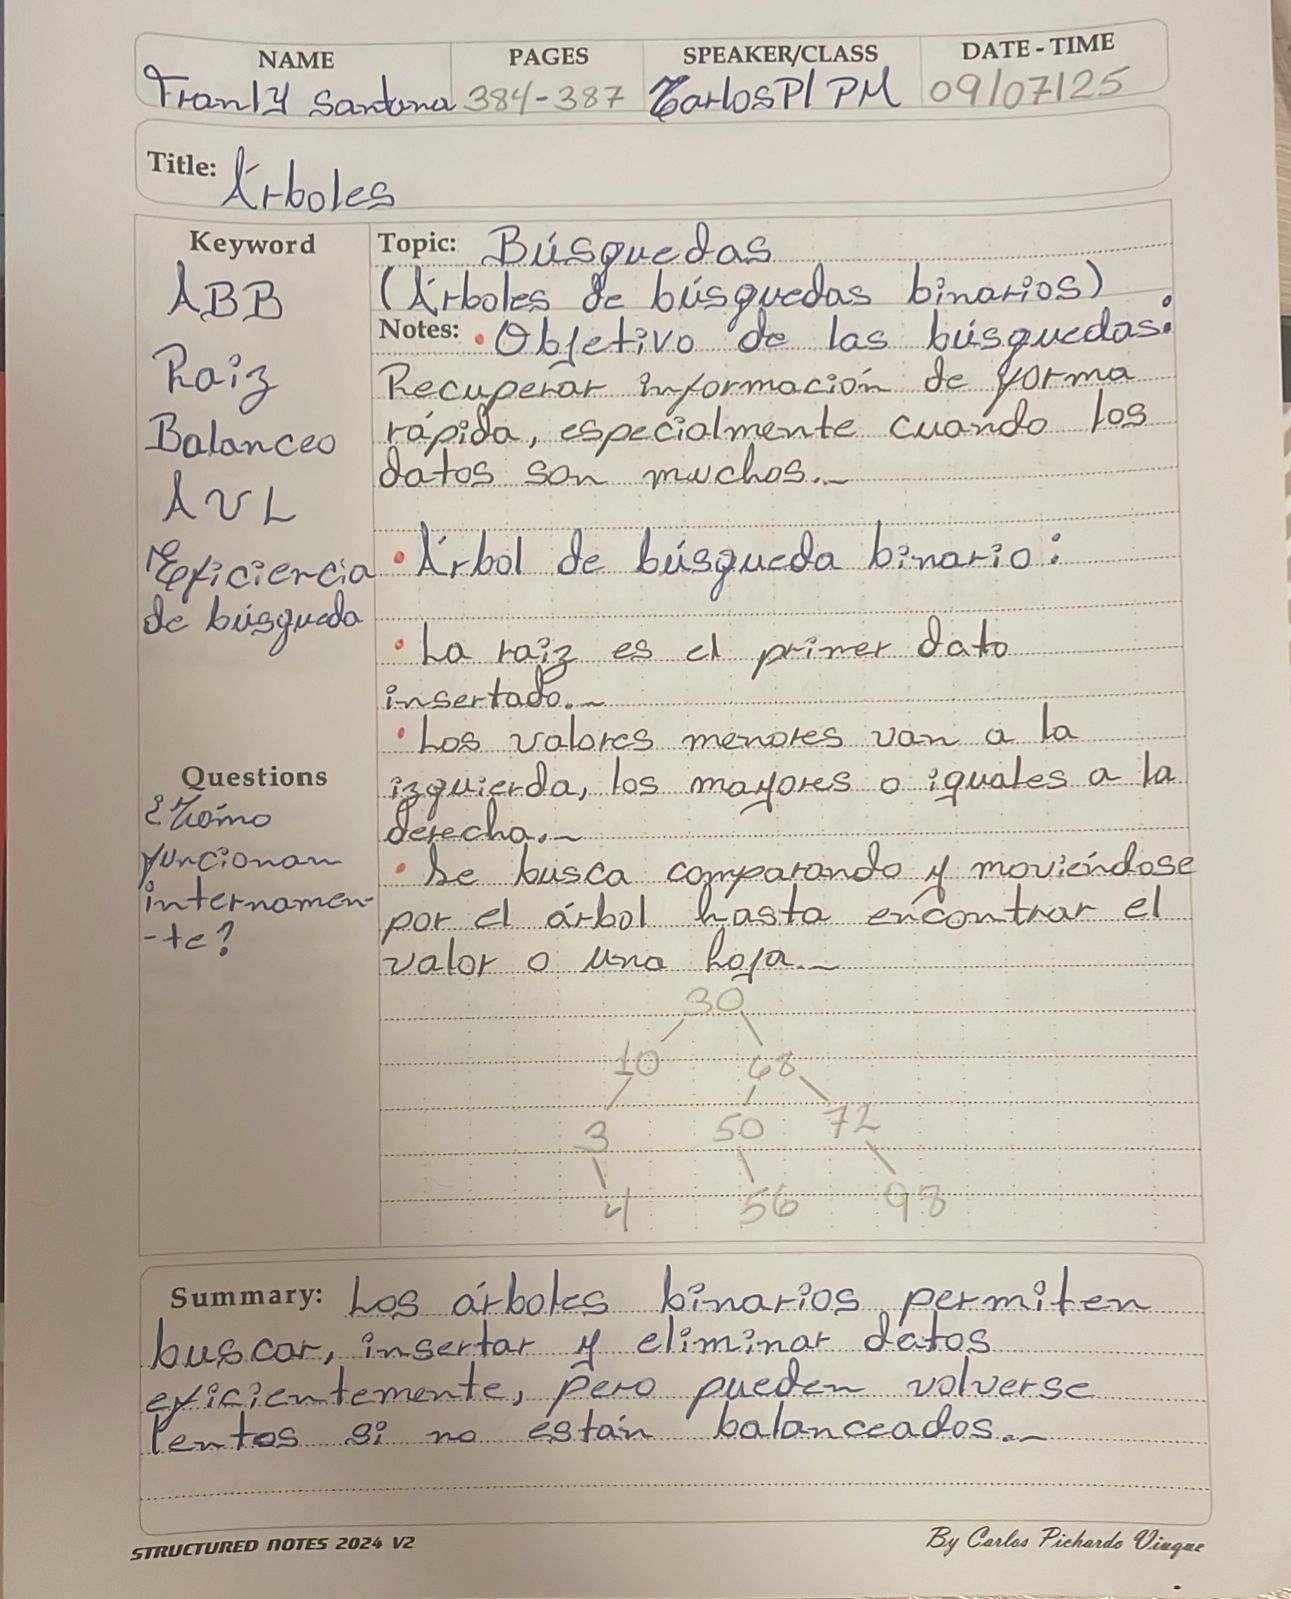 NAME PAGES SPEAKER/CLASS DATE - TIME
Franly Santana 384-387 CarlosP/PM 09/07/25
Title: Árboles
Keyword
ABB
Raiz
Balanceo
AVL
Eficiencia
de búsqueda
Questions
¿Cómo
funcionan
internamen-
-te?
Topic: Búsquedas
(Árboles de búsquedas binarios)
Notes: • Objetivo de las búsquedas:
Recuperar información de forma
rápida, especialmente cuando los
datos son muchos.
• Árbol de búsqueda binario:
• La raiz es el primer dato
insertado.
• Los valores menores van a la
izquierda, los mayores o iguales a la
derecha.
• Se busca comparando y moviéndose
por el árbol hasta encontrar el
valor o una hoja.
30
10 68
3 50 72
4 56 98
Summary: Los árboles binarios permiten
buscar, insertar y eliminar datos
eficientemente, pero pueden volverse
lentos si no están balanceados.
STRUCTURED NOTES 2024 V2
By Carlos Pichardo Viuque